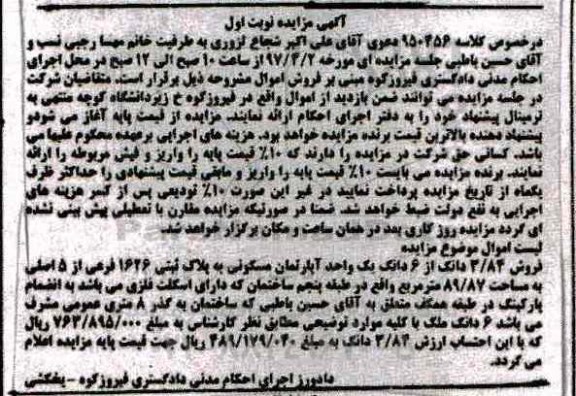 آگهی مزایده نوبت اول
درخصوص کلاسه ۹۵۰۴۵۶ دعوی آقای علی اکبر شجاع لزوری به طرفیت خانم مهسا رجبی نسب و
آقای حسین باطبی جلسه مزایده ای مورخه ۹۷/۴/۲ از ساعت ۱۰ صبح الی ۱۲ صبح در محل اجرای
احکام مدنی دادگستری فیروزکوه مبنی بر فروش اموال مشروحه ذیل برقرار است. متقاضیان شرکت
در جلسه مزایده می توانند ضمن بازدید از اموال واقع در فیروزکوه خ زیردانشگاه کوچه منتهی به
ترمینال پیشنهاد خود را به دفتر اجرای احکام ارائه نمایند. مزایده از قیمت پایه آغاز می شودو
پیشنهاد دهنده بالاترین قیمت برنده مزایده خواهد بود. هزینه های اجرایی برعهده محکوم علیها می
باشد. کسانی حق شرکت در مزایده را دارند که ۱۰٪ قیمت پایه را واریز و فیش مربوطه را ارائه
نمایند. برنده مزایده می بایست ۱۰٪ قیمت پایه را واریز و مابقی قیمت پیشنهادی را حداکثر ظرف
یکماه از تاریخ مزایده پرداخت نمایید در غیر این صورت ۱۰٪ تودیعی پس از کسر هزینه های
اجرایی به نفع دولت ضبط خواهد شد. ضمنا در صورتیکه مزایده مقارن با تعطیلی پیش بینی نشده
ای گردد مزایده روز کاری بعد در همان ساعت و مکان برگزار خواهد شد.
لیست اموال موضوع مزایده
فروش ۳/۸۴ دانگ از ۶ دانگ یک واحد آپارتمان مسکونی به پلاک ثبتی ۱۶۲۶ فرعی از ۵ اصلی
به مساحت ۸۹/۸۷ مترمربع واقع در طبقه پنجم ساختمان که دارای اسکلت فلزی می باشد به انضمام
پارکینگ در طبقه همکف متعلق به آقای حسین باطبی که ساختمان به گذر ۸ متری عمومی مشرف
می باشد ۶ دانگ ملک با کلیه موارد توضیحی مطابق نظر کارشناسی به مبلغ ۷۶۳/۸۹۵/۰۰۰ ریال
که با این احتساب ارزش ۳/۸۴ دانگ به مبلغ ۴۸۹/۱۲۹/۰۴۰ ریال جهت قیمت پایه مزایده اعلام
می گردد.
دادورز اجرای احکام مدنی دادگستری فیروزکوه - یخکشی